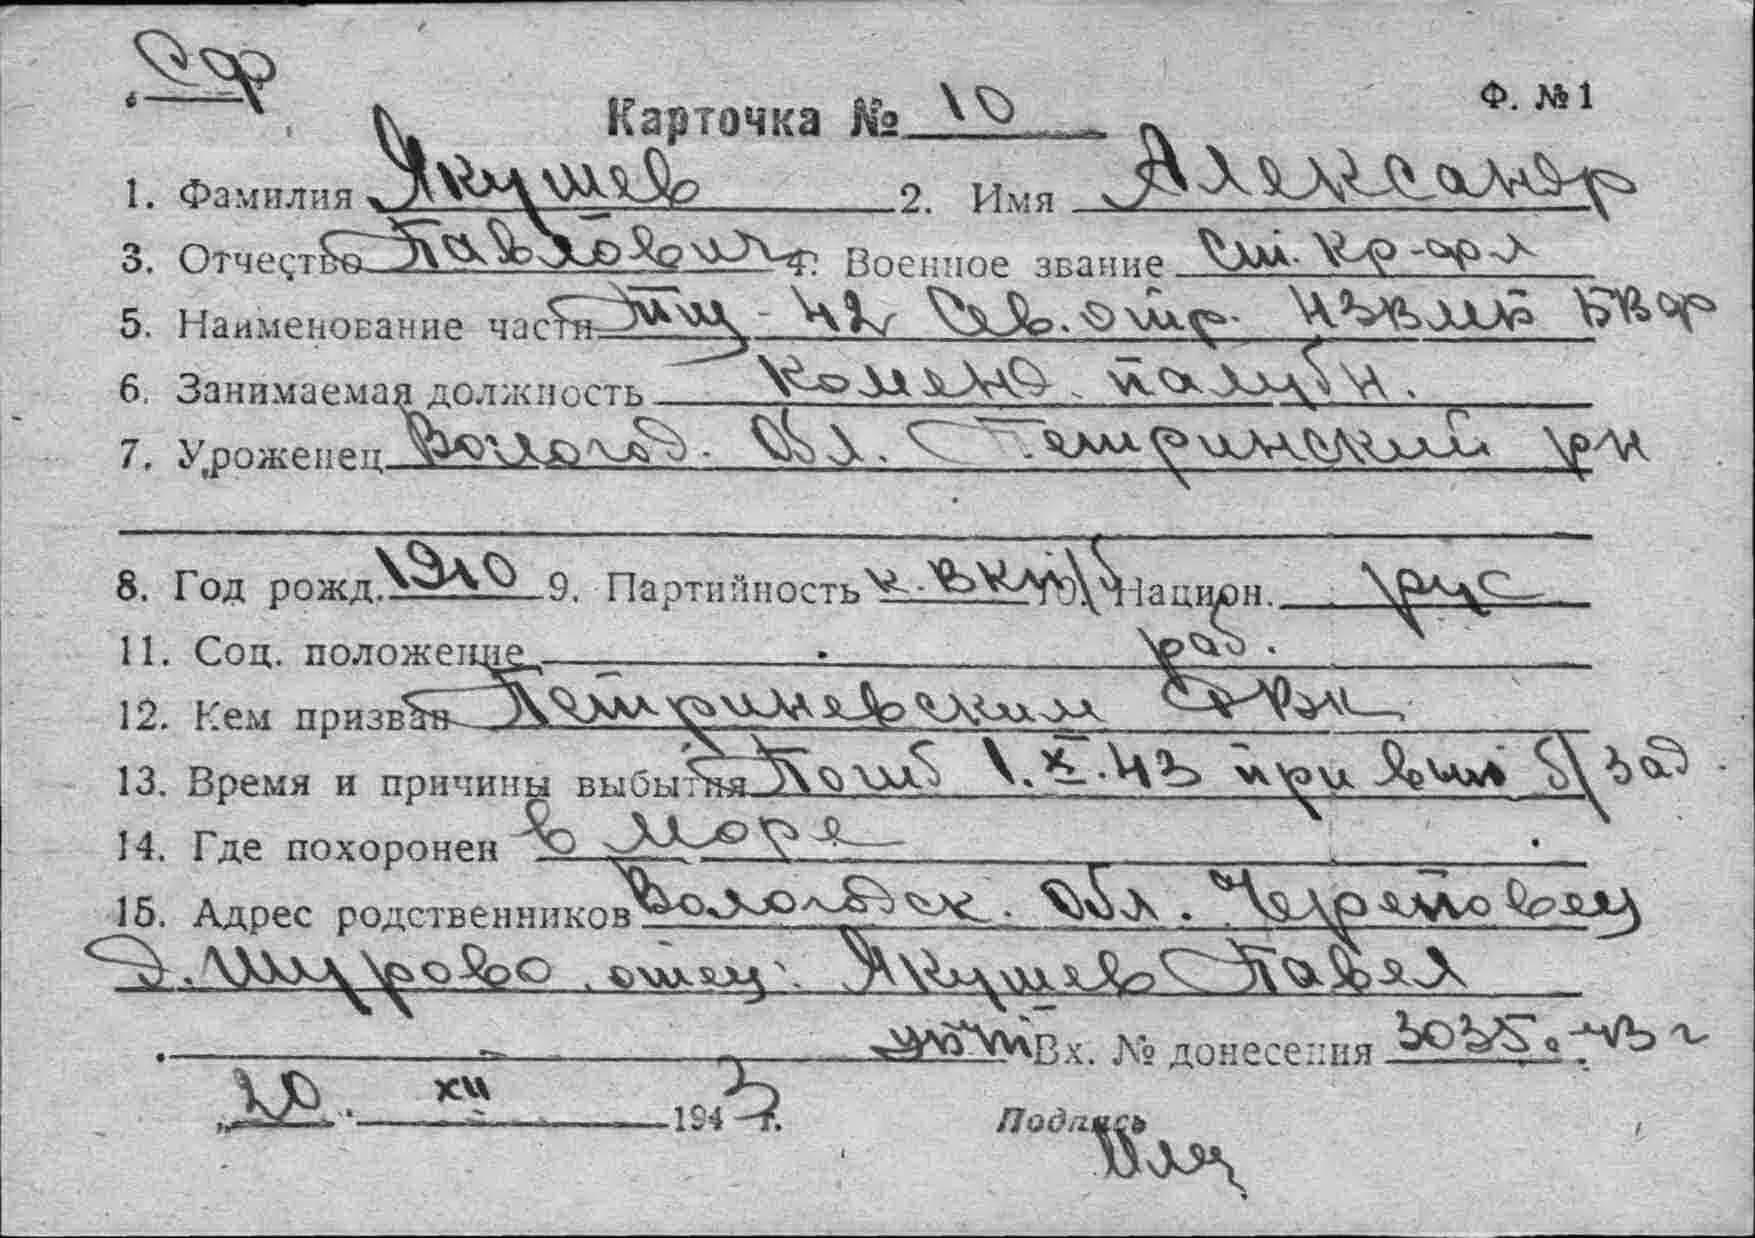 Сф
Ф. №1
Карточка № 10
1. Фамилия Якушев 2. Имя Александр
3. Отчество Павлович 4. Военное звание Ст. кр-фл
5. Наименование части ТЩ-42 Сев. отр. ИЗВМБ БВФ
6. Занимаемая должность Коменд. палубн.
7. Уроженец Вологод. Обл. Петринский рн
8. Год рожд. 1910 9. Партийность к. ВКП/б 10. Национ. рус
11. Соц. положение раб.
12. Кем призван Петриневским РВК
13. Время и причины выбытия Погиб 1.X.43 при вып б/зад.
14. Где похоронен в море
15. Адрес родственников Вологодск. Обл. Череповец
д. Шурово. отец: Якушев Павел
Вх. № донесения 3035. 43 г
20. XII 1943 г.
Подпись